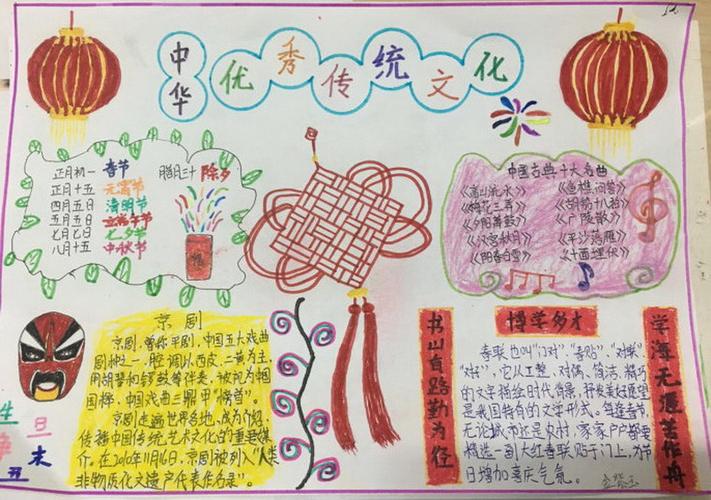 中华优秀传统文化
正月初一 春节
正月十五 元宵节
四月五日 清明节
五月五日 端午节
七月七日 七夕节
八月十五 中秋节
腊月三十 除夕
中国古典十大名曲
《高山流水》 《渔樵问答》
《梅花三弄》 《胡笳十八拍》
《夕阳萧鼓》 《广陵散》
《汉宫秋月》 《平沙落雁》
《阳春白雪》 《十面埋伏》
京剧
京剧，曾称平剧，中国五大戏曲
剧种之一，腔调以西皮、二黄为主，
用胡琴和锣鼓等伴奏，被视为中国
国粹，中国戏曲三鼎甲“榜首”。
京剧走遍世界各地，成为介绍、
传播中国传统艺术文化的重要媒
介。在2010年11月16日，京剧被列入“人类
非物质化文遗产代表作名录”。
生
旦
净
末
丑
书山有路勤为径
博学多才
学海无涯苦作舟
春联也叫“门对”、“春贴”、“对联”
“对”，它以工整、对偶、简洁、精巧
的文字描绘时代背景，抒发美好愿望
是我国特有的文学形式。每逢春节，
无论城市还是农村，家家户户都要
精选一副大红春联贴于门上，为节
日增加喜庆气氛。